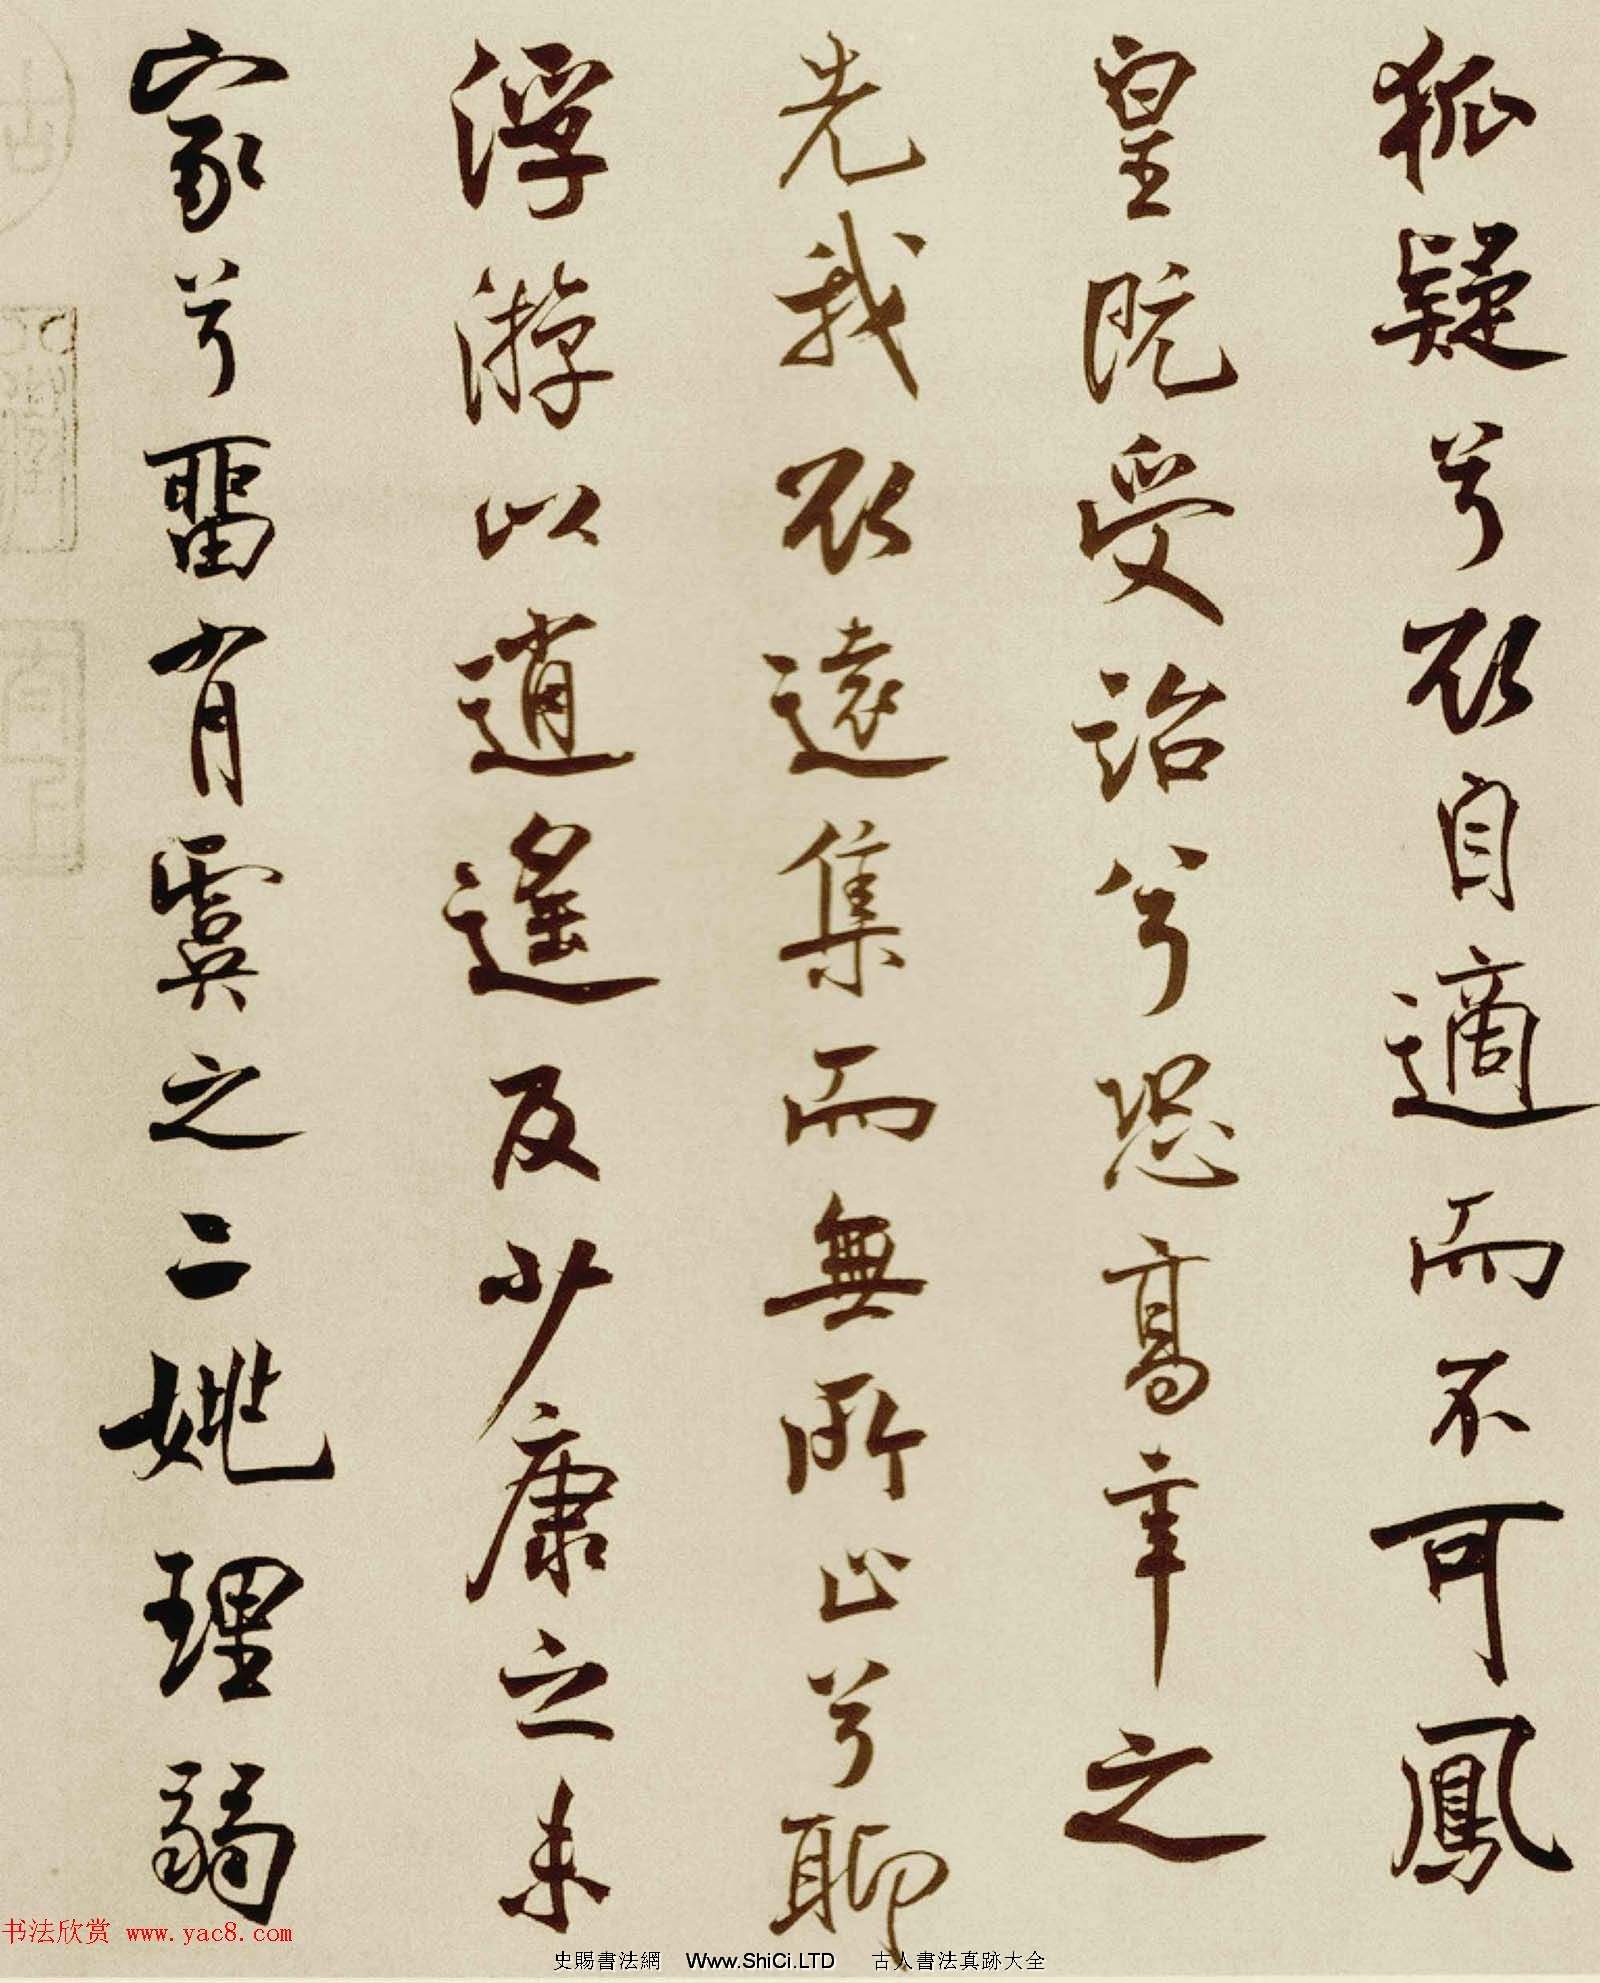 狐疑兮欲自適而不可鳳
皇既受詒兮恐高辛之
先我欲遠集而無所止兮聊
浮游以逍遙及少康之未
家兮留有虞之二姚理弱
书法欣赏 www.yac8.com
史賜書法網 Www.ShiCi.LTD 古人書法真跡大全